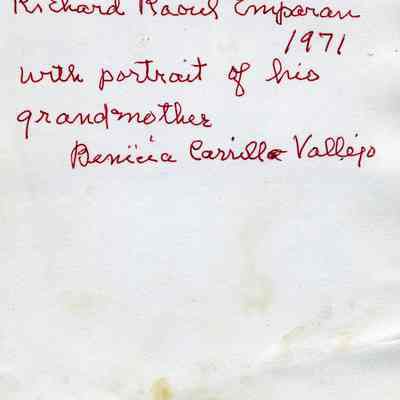 Richard Raoul Emparan
1971
with portrait of his
grandmother
Benicia Carrillo Vallejo